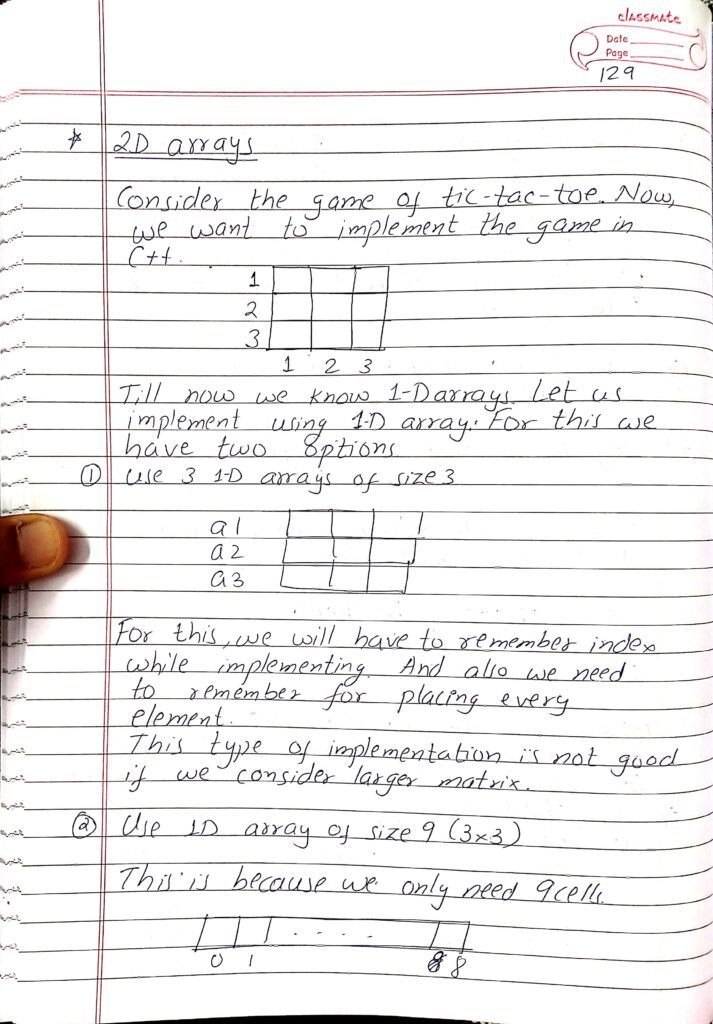 classmate
Date
Page
129
* 2D arrays
Consider the game of tic-tac-toe. Now,
we want to implement the game in
C++.
1
2
3
1 2 3
Till now we know 1-D arrays. Let us
implement using 1-D array. For this we
have two options
① Use 3 1-D arrays of size 3
a1
a2
a3
For this, we will have to remember index
while implementing. And also we need
to remember for placing every
element.
This type of implementation is not good
if we consider larger matrix.
② Use 1D array of size 9 (3x3)
This is because we only need 9 cells.
. . . .
0 1 8